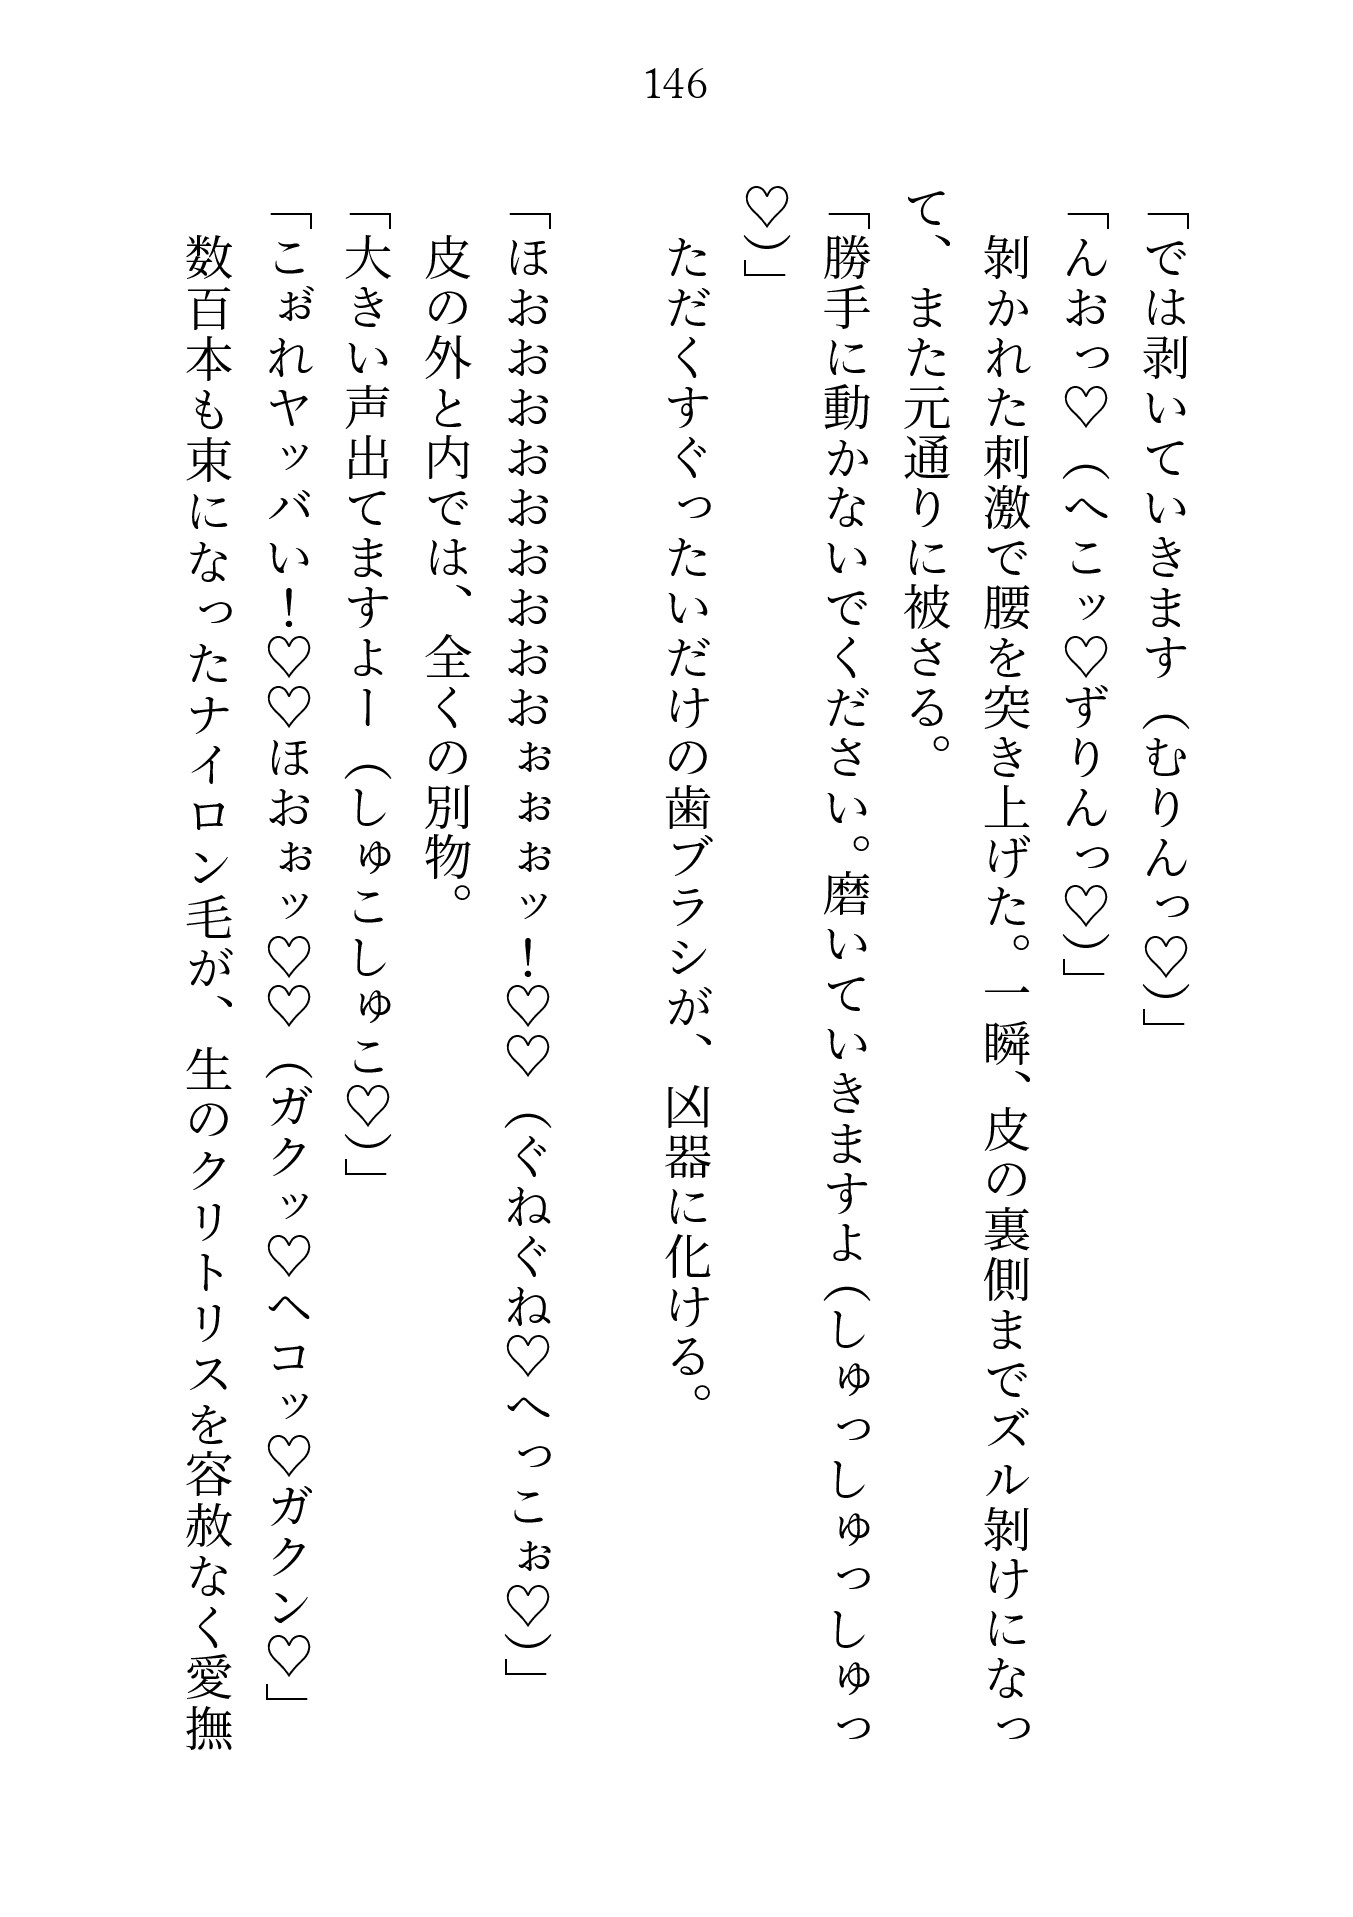 146
「では剥いていきます（むりんっ♡）」
「んおっ♡（へこッ♡ずりんっ♡）」
剝かれた刺激で腰を突き上げた。一瞬、皮の裏側までズル剝けになっ
て、また元通りに被さる。
「勝手に動かないでください。磨いていきますよ（しゅっしゅっしゅっ
♡）」
ただくすぐったいだけの歯ブラシが、凶器に化ける。
「ほおおおおおおおおおぉぉぉッ！♡♡（ぐねぐね♡へっこぉ♡）」
皮の外と内では、全くの別物。
「大きい声出てますよー（しゅこしゅこ♡）」
「こぉ゙れヤッバい！♡♡ほおぉッ♡♡（ガクッ♡ヘコッ♡ガクン♡」
数百本も束になったナイロン毛が、生のクリトリスを容赦なく愛撫